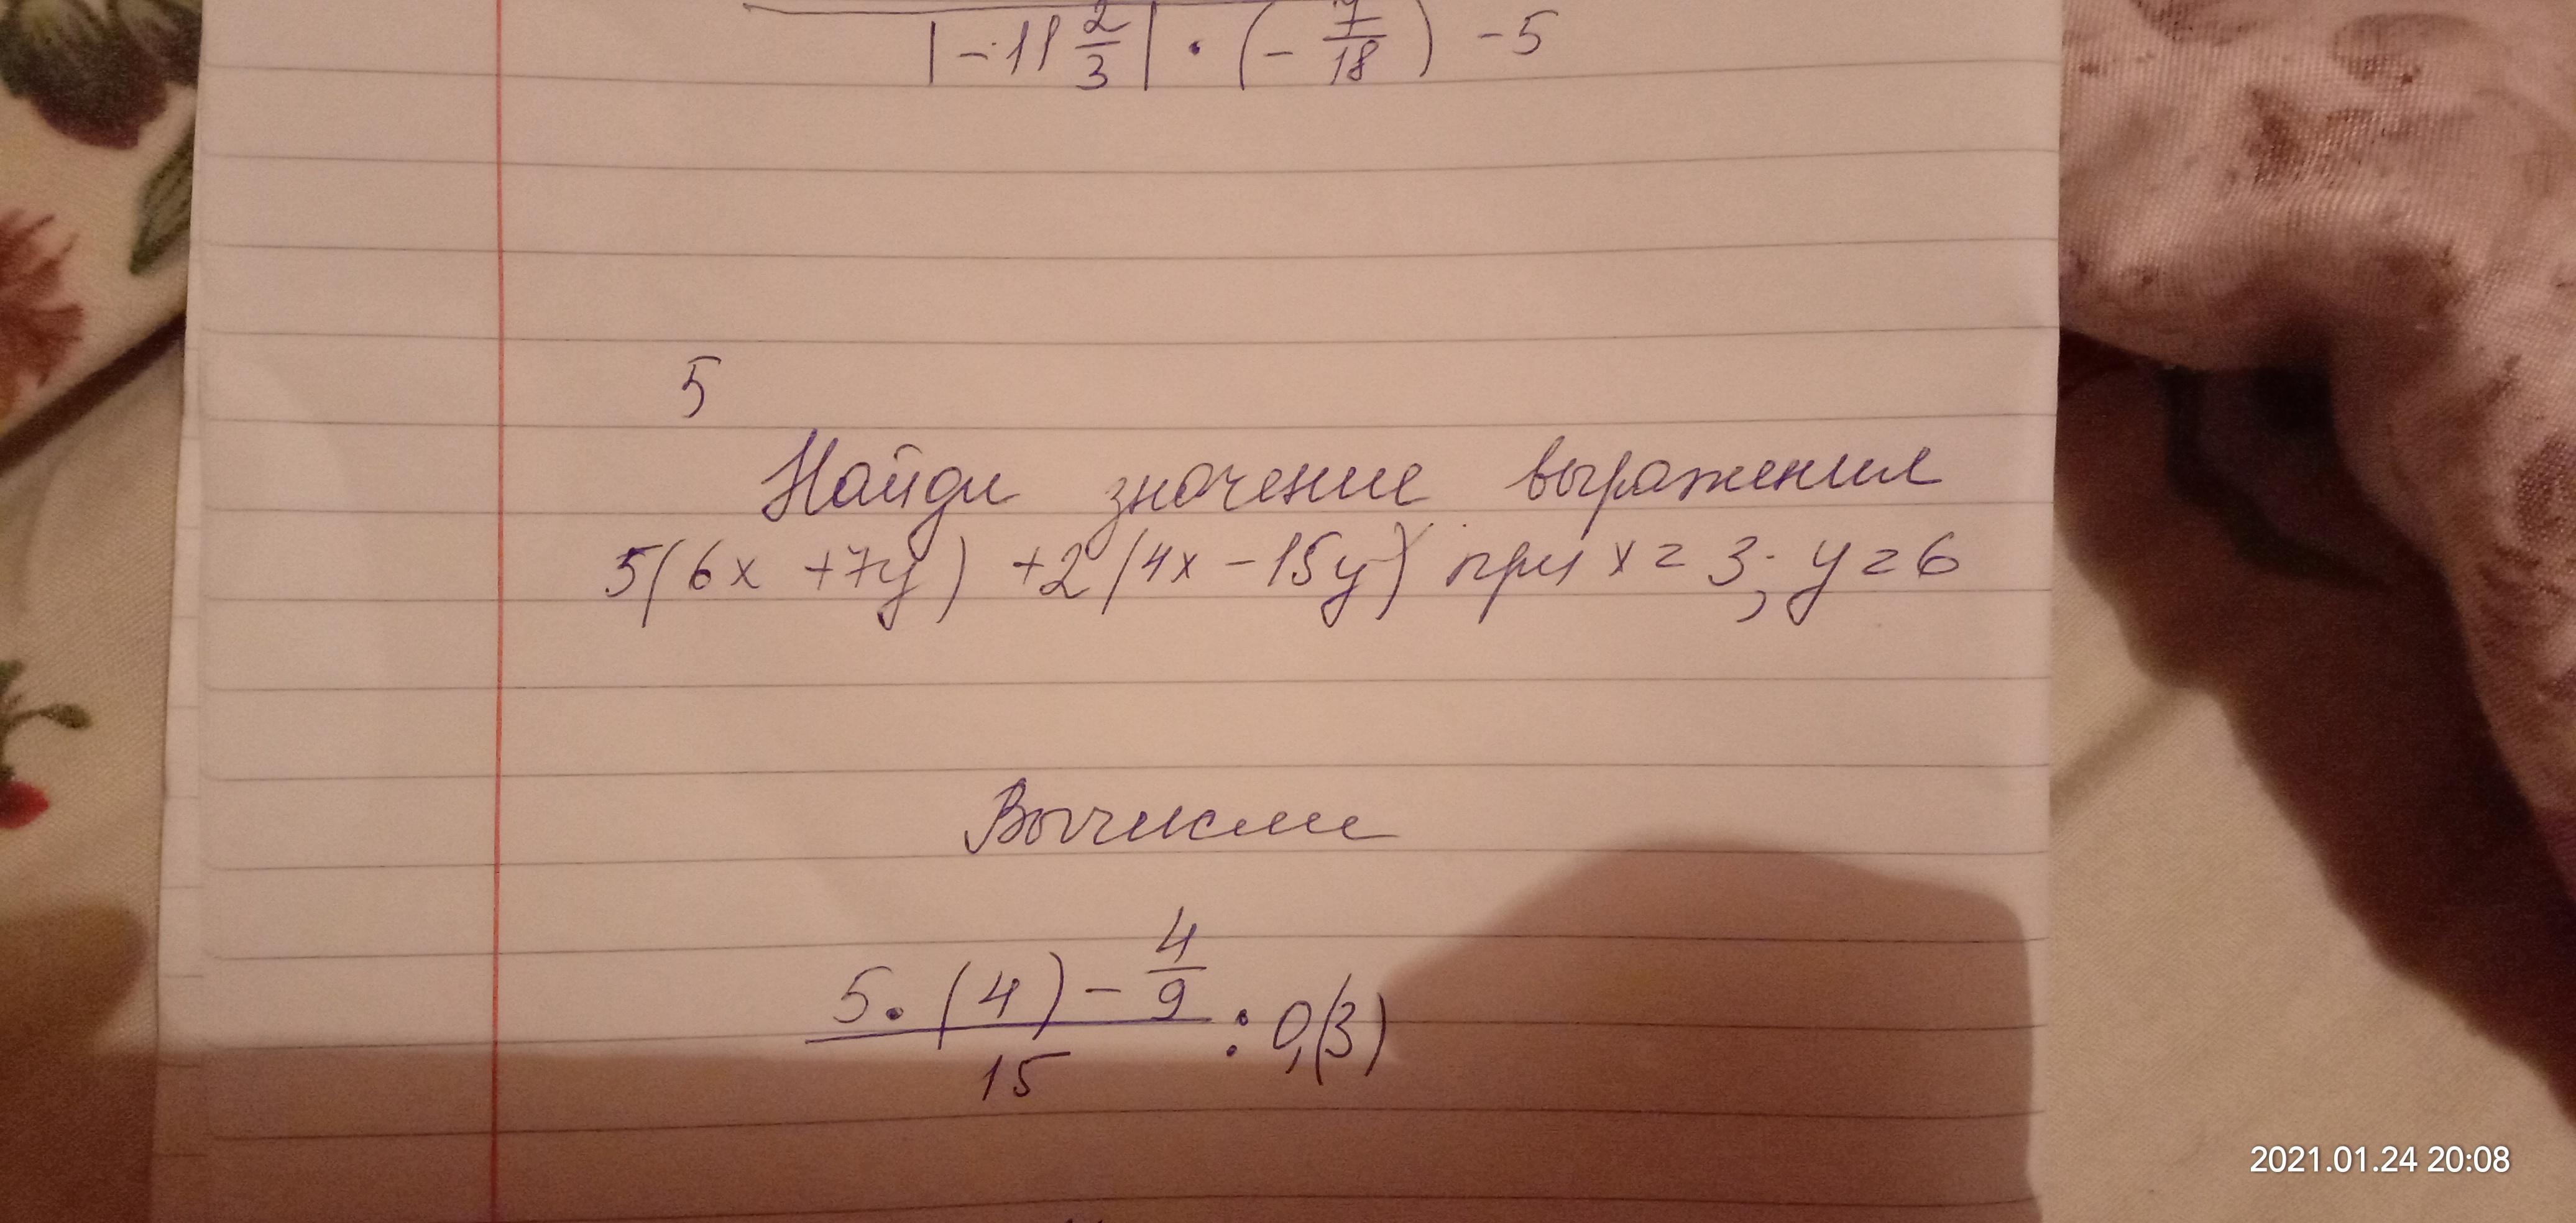 |-11 2/3| · (- 7/18) - 5
5
Найди значение выражения
5(6x + 7y) + 2(4x - 15y) при x = 3; y = 6
Вычисли
5·(4) - 4/9
15
: 0,(3)
2021.01.24 20:08